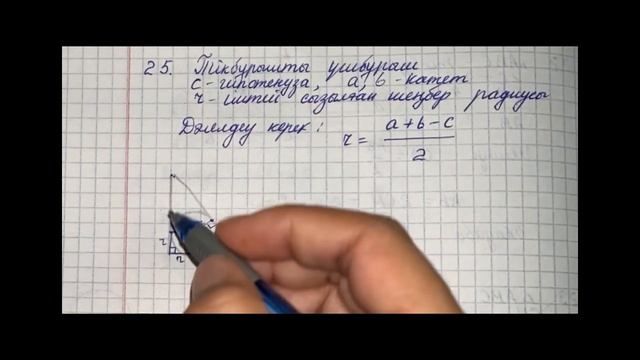 25. Тікбұрышты үшбұрыш
c - гипотенуза, a, b - катет
r - іштей сызылған шеңбер радиусы
Дәлелдеу керек: r = (a+b-c)/2
r
r